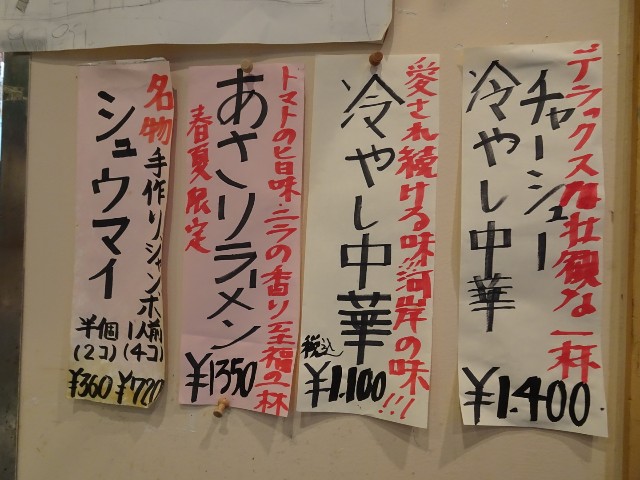 デラックスな壮観な一杯
チャーシュー
冷やし中華
¥1.400
愛され続ける味!!!河岸の味!!!
冷やし中華
税込
¥1.100
トマトの旨味・ニラの香り至福の一杯
あさりラーメン
春夏限定
¥1350
名物手作りジャンボ
シュウマイ
1人前(4コ)
¥720
半個(2コ)
¥360